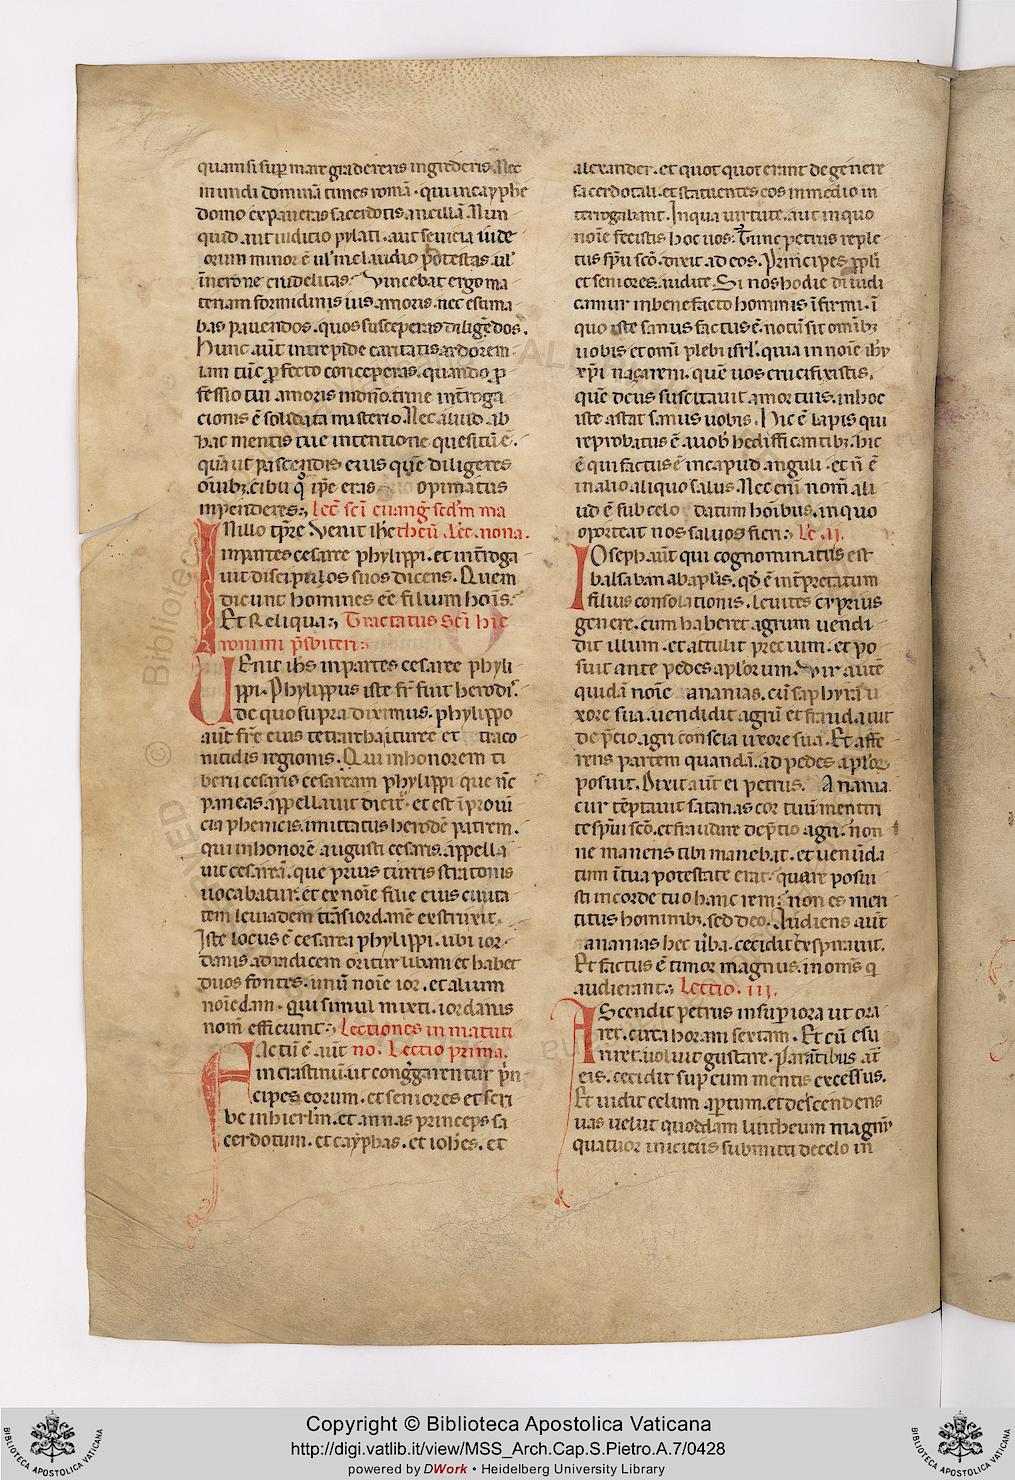 quam si sup mare gradereris ingrederis. Nec
mundi dominā times romā. qui in cayphe
domo expaueras sacerdotis ancillā. Nun
quid. aut iuditio pylati. aut seuicia iude
orum minor ē ul' in claudio potestas. ul'
īnerone crudelitas. Vincebat ergo ma
teriam formidinis uis amoris. nec estima
bas pauendos. quos susceperas diligēdos.
Hunc aūt intrepide caritatis ardorem.
iam tūc pfecto conceperas. quando p
fessio tui amoris in dn̄o. trine int̄roga
cionis ē solidata misterio. Nec aliud ab
hac mentis tue intentione quesitū ē.
quā ut pascendis eius quē diligeres
ouibȝ. cibū q̊ ip̄e eras opimatus
inpenderes. Lec̄ sc̄i euanḡ scd'm ma
INillo tp̄re. Venit ih̄c theū. Lec. nona.
in partes cesaree phylippi. et int̄roga
uit discipulos suos dicens. Quem
dicunt homines eē filium hoīs.
Et Reliqua. Tractatus Sc̄i hie
ronimi p̄sbiteri.
VEnit ih̄s in partes cesaree phyli
ppi. Phylippus iste fr̄ fuit herodis.
de quo supra diximus. phylippo
aūt fr̄e eius tetrarcha ituree et traco
nitidis regionis. Qui in honorem ti
berii cesaris cesaream phylippi que nc̄
paneas appellauit dicit'. et est ī proui
cia phenicis. imitatus herodē patrem.
qui in honorē augusti cesaris. appella
uit cesareā. que prius turris stratonis
uocabatur. et ex noīe filie eius ciuita
tem leuiadem trāsiordanē exstruxit.
Iste locus ē cesarea phylippi. ubi ior
danis ad radicem oritur libani et habet
duos fontes. unū noīe ior. et alium
noīe dam. qui simul mixti. iordanis
nom̄ efficiunt. Lectiones in matuti
FActū ē aūt no. Lectio prima.
in crastinū. ut cong̃garentur p̄n
cipes eorum. et seniores et scri
be in hierlm̄. et annas princeps sa
cerdotum. et cayphas. et ioh̄es. et
alexander. et quot quot erant de genere
sacerdotali. et statuentes eos in medio in
terrogabant. In qua uirtute. aut in quo
noīe fecistis hoc uos. Tunc petrus reple
tus sp̄u sc̄o. dixit ad eos. Principes ppli
et seniores. iudite. Si nos hodie diiudi
camur in benefacto hominis īfirmi. ī
quo iste sanus factus ē. notū sit om̄ibȝ
uobis et om̄i plebi isrl'. quia in noīe ih̄u
xp̄i naçareni. quē uos crucifixistis.
quē deus suscitauit a mortuis. in hoc
iste astat sanus uobis. Hic ē lapis qui
reprobatus ē a uob' hedifficantibȝ. hic
ē qui factus ē in capud anguli. et n̄ ē
in alio aliquo salus. Nec enī nom̄ ali
ud ē sub celo datum hoībus. in quo
oporteat nos saluos fieri. Lc̄. ii.
IOseph aūt qui cognominatus est
balsaban ab apl'is. qd' ē int̄pretatum
filius consolationis. leuites cyprius
genere. cum haberet agrum uendi
dit illum. et attulit precium. et po
suit ante pedes apl'orum. Vir autē
quidā noīe ananias. cū saphyra u
xore sua. uendidit agrū et fraudauit
de p̄cio agri conscia uxore sua. Et affe
rens partem quandā. ad pedes apl'or
posuit. Dixit aūt ei petrus. Anania.
cur tēptauit satanas cor tuū mentiri
te sp̄ui sc̄o. et fraudare de p̄tio agri. non
ne manens tibi manebat. et uenūda
tum ī tua potestate erat. quare posui
sti in corde tuo hanc rem. non es men
titus hominibȝ. sed deo. Audiens aūt
ananias hec u̇ba. cecidit et expirauit.
Et factus ē timor magnus. in om̄s q
audierant. Lectio. iii.
AScendit petrus in supiora ut ora
ret. circa horam sextam. Et cū esu
riret. uoluit gustare. Parātibus aūt
eis. cecidit sup eum mentis excessus.
Et uidit celum aptum. et descendens
uas uelut quoddam lintheum magnū
quatuor iniciis submitti de celo in
Copyright © Biblioteca Apostolica Vaticana
http://digi.vatlib.it/view/MSS_Arch.Cap.S.Pietro.A.7/0428
powered by DWork • Heidelberg University Library